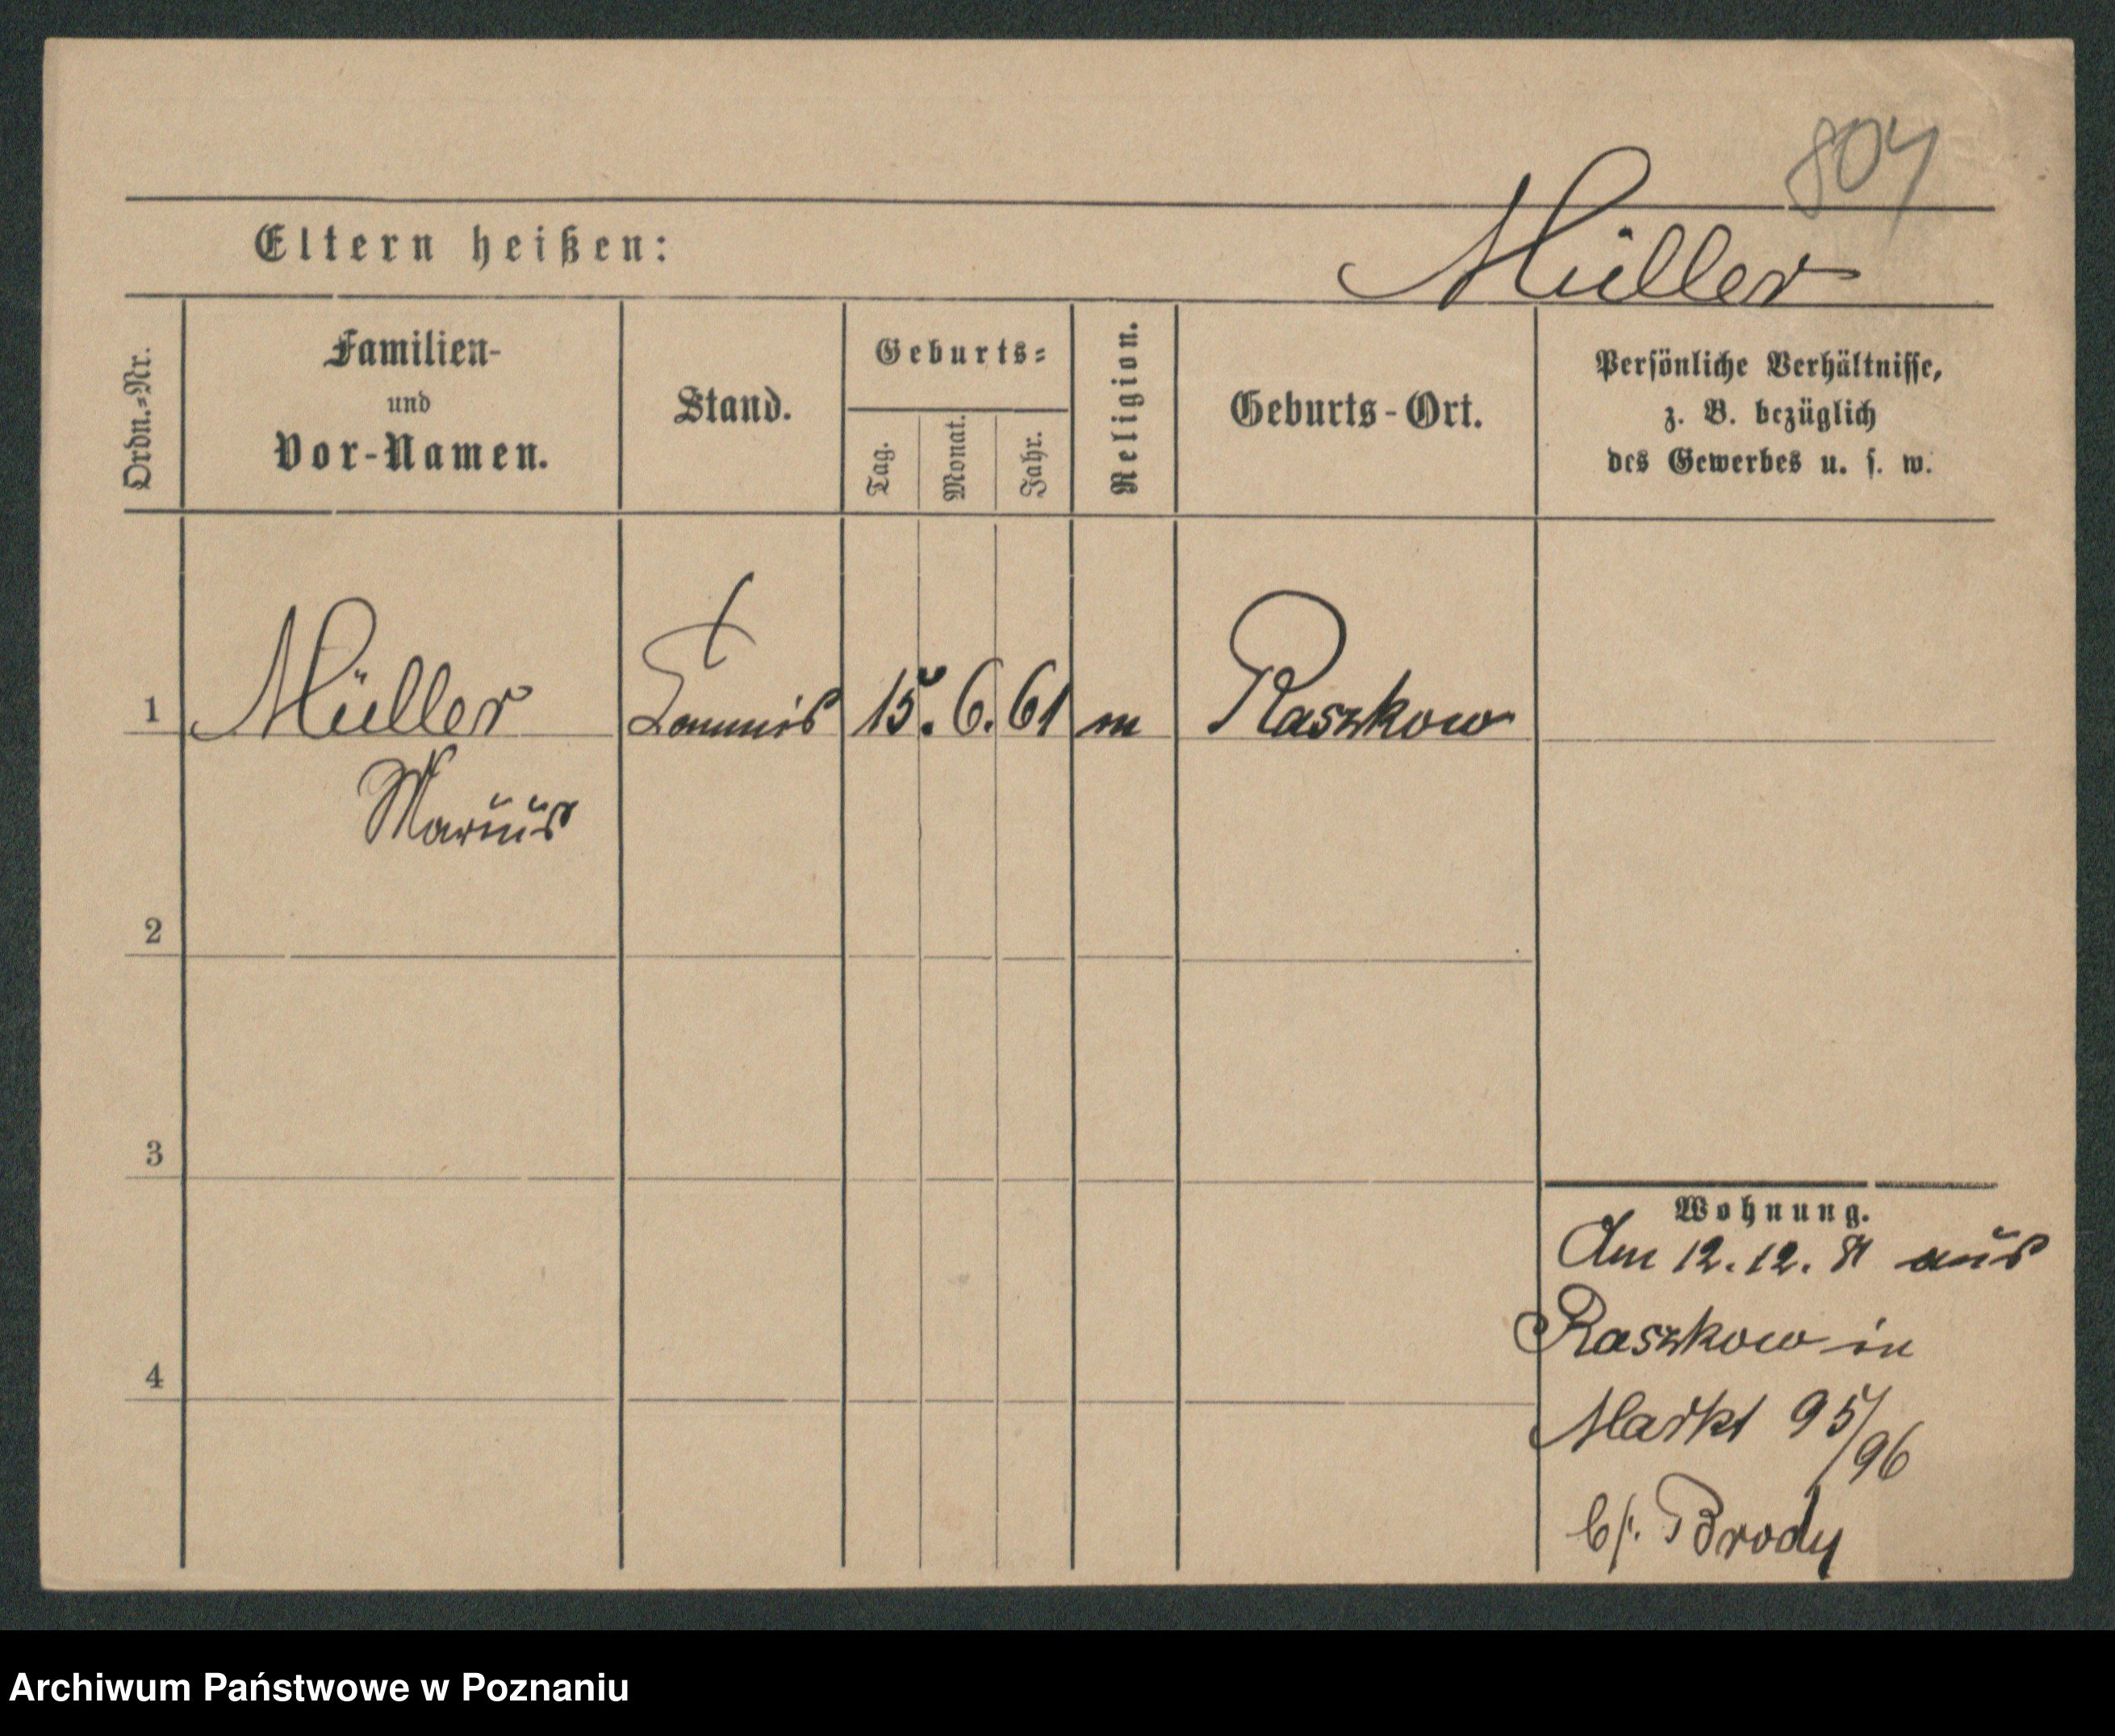 804
Eltern heißen:
Müller
Ordn.-Nr.
Familien-
und
Vor-Namen.
Stand.
Geburts-
Tag.
Monat.
Jahr.
Religion.
Geburts-Ort.
Persönliche Verhältnisse,
z. B. bezüglich
des Gewerbes u. s. w.
1 Müller Commis 15. 6. 61 m Raszkow
Marcus
2
3
4
Wohnung.
Am 12. 12. 81 aus
Raszkow in
Markt 95/96
b/. Brody
Archiwum Państwowe w Poznaniu